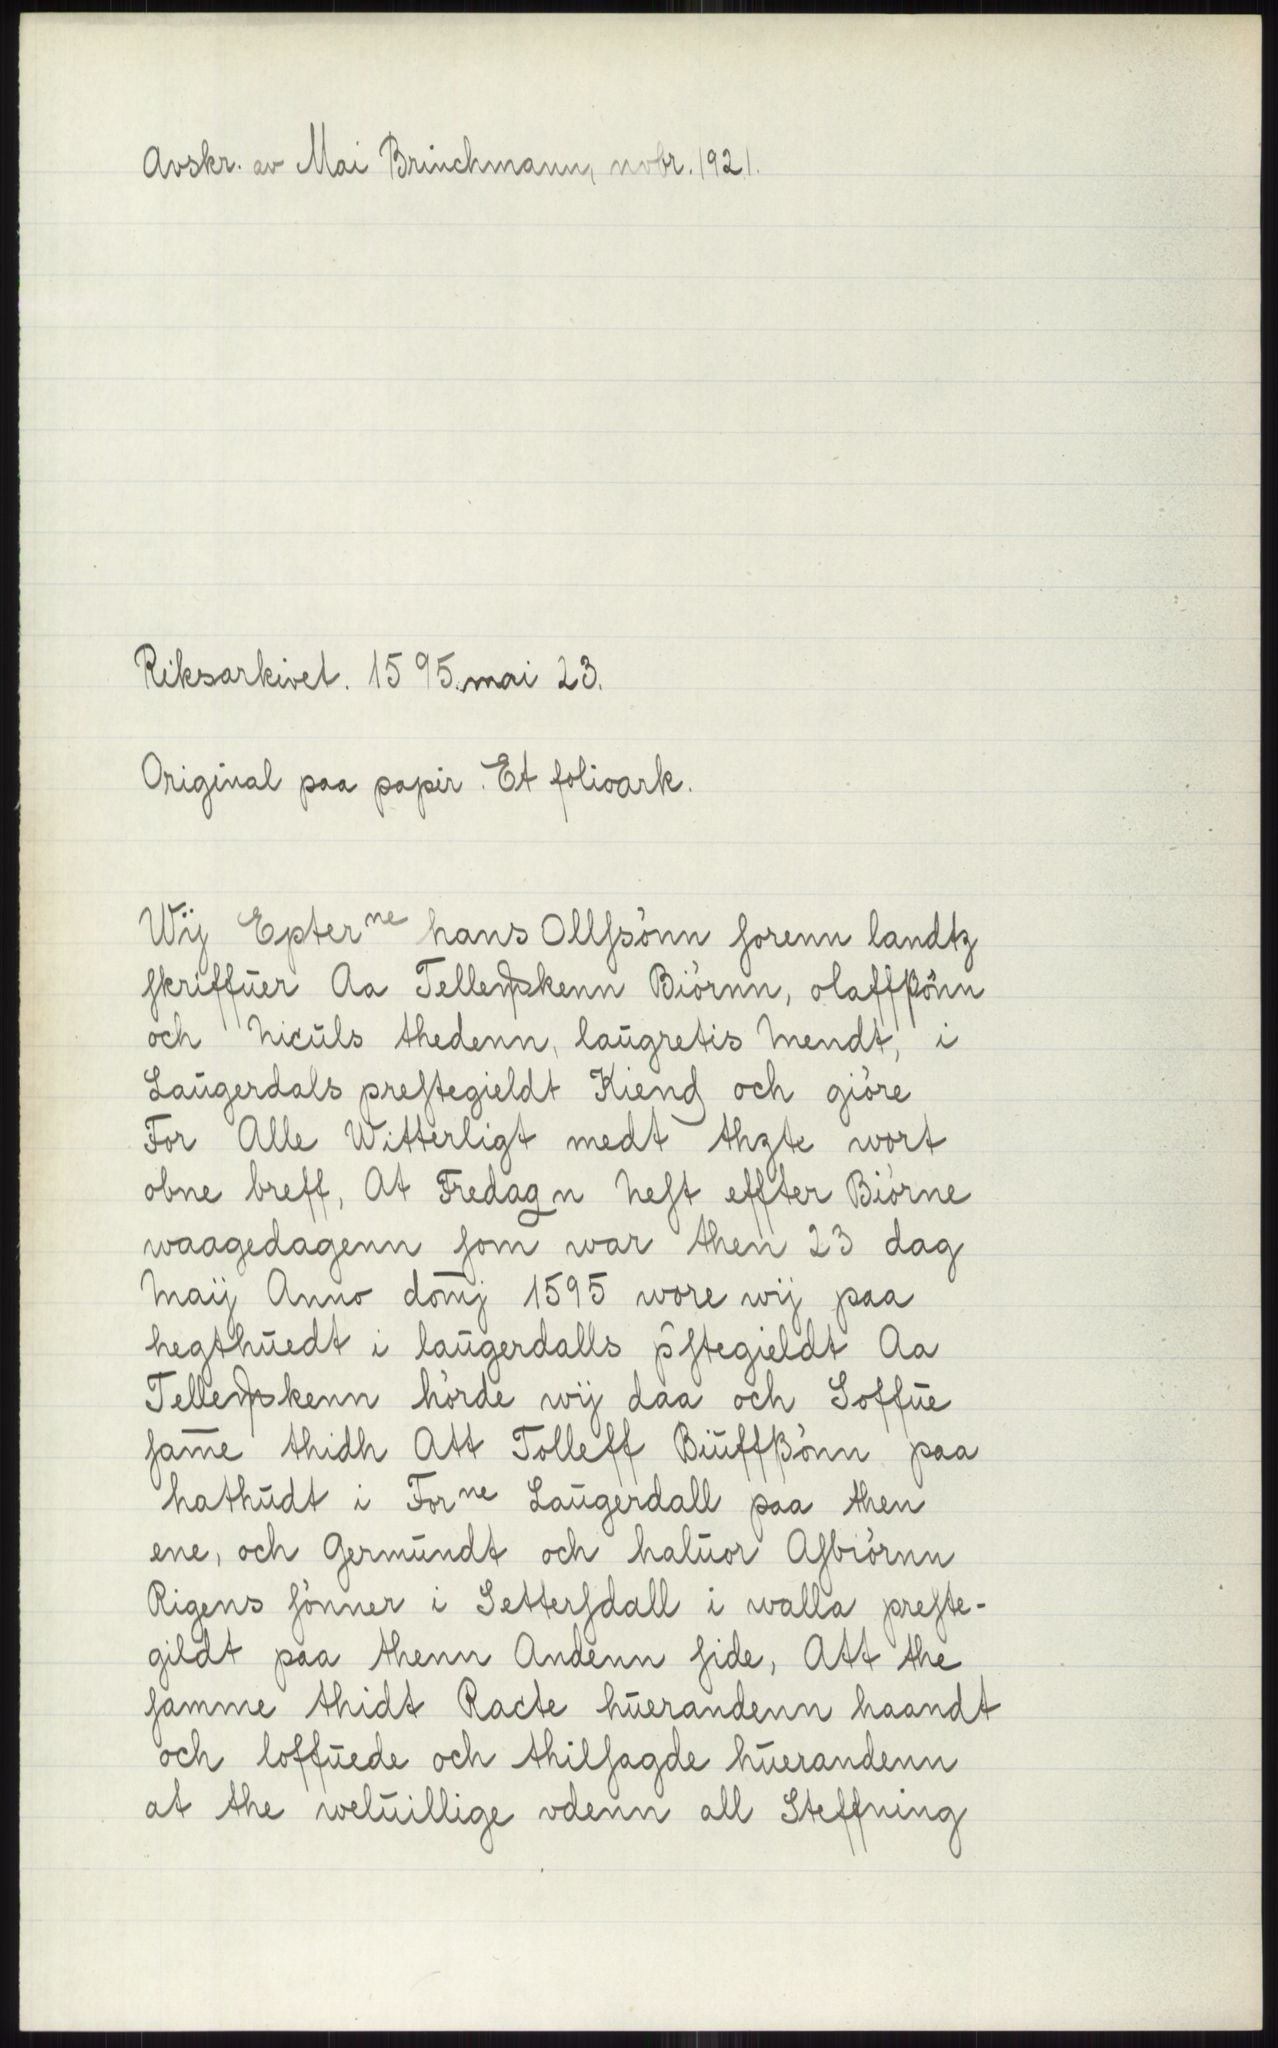 Avskr. av Mai Brinchmann, novbr. 1921.
Riksarkivet. 1595. mai 23.
Original paa papir. Et folioark.
Wij Epter ⁿᵉ hans Ollſsönn sorenn landtz
ſkriffūer Aa Tellemskenn Biörnn, olaffſßönn
och Niculs thedenn, laūgretis Mendt, i
Laūgerdals preſtegieldt Kiend och giöre
For Alle Witterligt medt thzte wort
obne breff, At Fredagn Neſt effter Biörne
waagedagenn ſom war then 23 dag
Maij Anno dom̄j 1595 wore wij paa
hegthūedt i laūgerdalls p̄ſtegieldt Aa
Tellemskenn hörde wij daa och Soffūe
ſam̄e thidh Att Tolleff Biūffßönn paa
hathūdt i Forⁿᵉ Laūgerdall paa then
ene, och Germūndt och halūor Aſbiörnn
Rigens ſönner i Setterſdall i walla preſte-
gildt paa thenn Andenn ſide, Att the
ſamme thidt Racte hūerandenn haandt
och loffūede och thilſagde hūerandenn
at the welūillige vdenn all Steffning